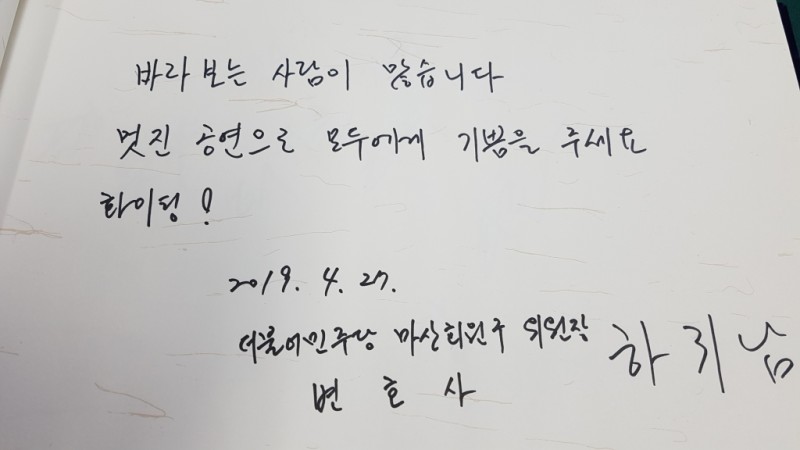 바라보는 사람이 많습니다
멋진 공연으로 모두에게 기쁨을 주세요
화이팅!
2019. 4. 27.
더불어민주당 마산회원구 위원장 하귀남
변 호 사